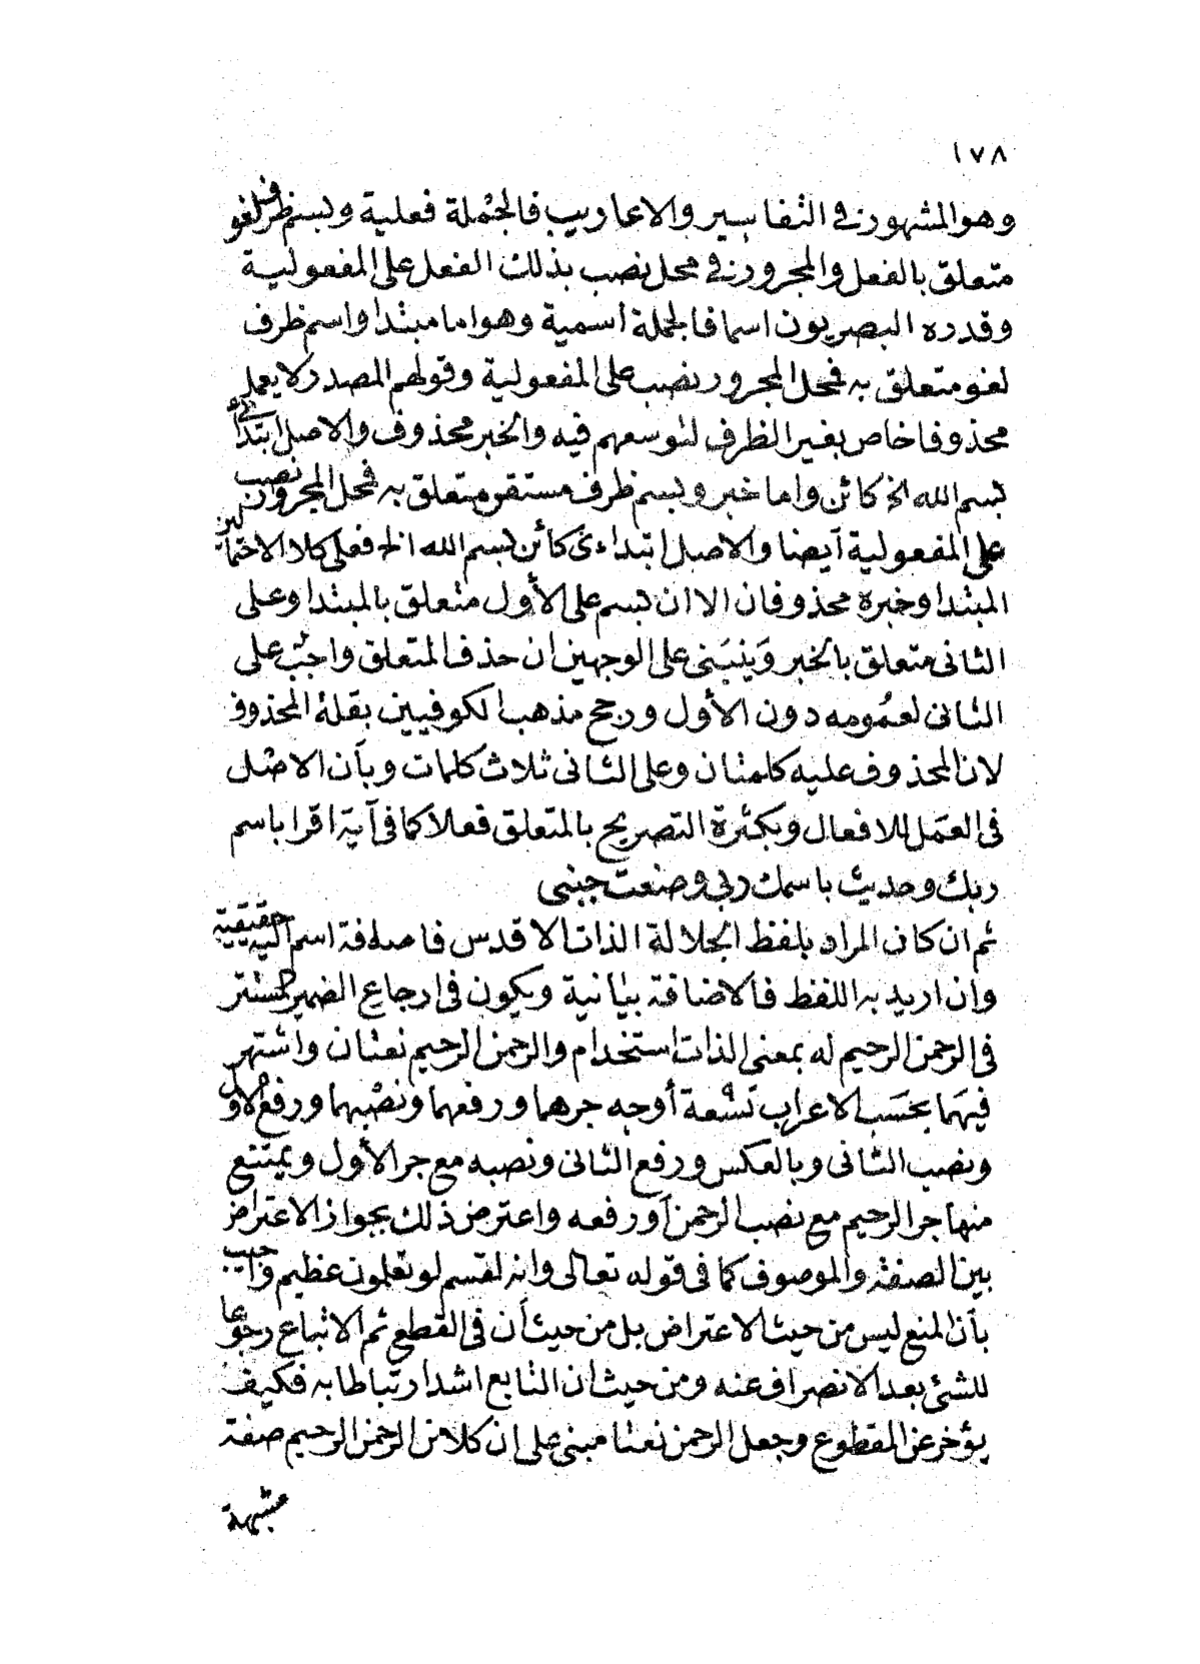 ١٧٨
وهو المشهور في التفاسير والاعاريب فالجملة فعلية وبسم ظرف لغو
متعلق بالفعل والمجرور في محل نصب بذلك الفعل على المفعولية
وقدره البصريون اسما فالجملة اسمية وهو اما مبتدا واسم ظرف
لغو متعلق به فمحل المجرور نصب على المفعولية وقولهم المصدر لا يعمل
محذوفا خاص بغير الظرف لتوسعهم فيه والخبر محذوف والاصل ابتدائي
بسم الله الخ كائن واما خبر وبسم ظرف مستقر متعلق به فمحل المجرور نصب
على المفعولية أيضا والاصل ابتداءى كائن بسم الله الخ فعلى كلا الاحتمالين
المبتدا وخبره محذوفان الا ان بسم على الأول متعلق بالمبتدا وعلى
الثانى متعلق بالخبر وينبنى على الوجهين ان حذف المتعلق واجب على
الثانى لعمومه دون الأول ورجح مذهب الكوفيين بقلة المحذوف
لان المحذوف عليه كلمتان وعلى الثانى ثلاث كلمات وبأن الاصل
فى العمل للافعال وبكثرة التصريح بالمتعلق فعلا كما فى آية اقرا باسم
ربك وحديث باسمك ربي وضعت جنبى
ثم ان كان المراد بلفظ الجلالة الذات الاقدس فاضافة اسم اليه حقيقية
وان اريد به اللفظ فالاضافة بيانية ويكون فى ارجاع الضمير المستتر
فى الرحمن الرحيم له بمعنى الذات استخدام والرحمن الرحيم نعتان واشتهر
فيهما بحسب الاعراب تسعة أوجه جرهما ورفعهما ونصبهما ورفع الاول
ونصب الثانى وبالعكس ورفع الثانى ونصبه مع جر الأول ويمتنع
منها جر الرحيم مع نصب الرحمن أو رفعه واعترض ذلك بجواز الاعتراض
بين الصفة والموصوف كما فى قوله تعالى وانه لقسم لو تعلمون عظيم واجيب
بأن المنع ليس من حيث الاعتراض بل من حيث أن فى القطع ثم الاتباع رجوعا
للشئ بعد الانصراف عنه ومن حيث ان التابع اشد ارتباطا به فكيف
يؤخر عن المقطوع وجعل الرحمن نعتا مبنى على ان كلا من الرحمن الرحيم صفة
مشبهة